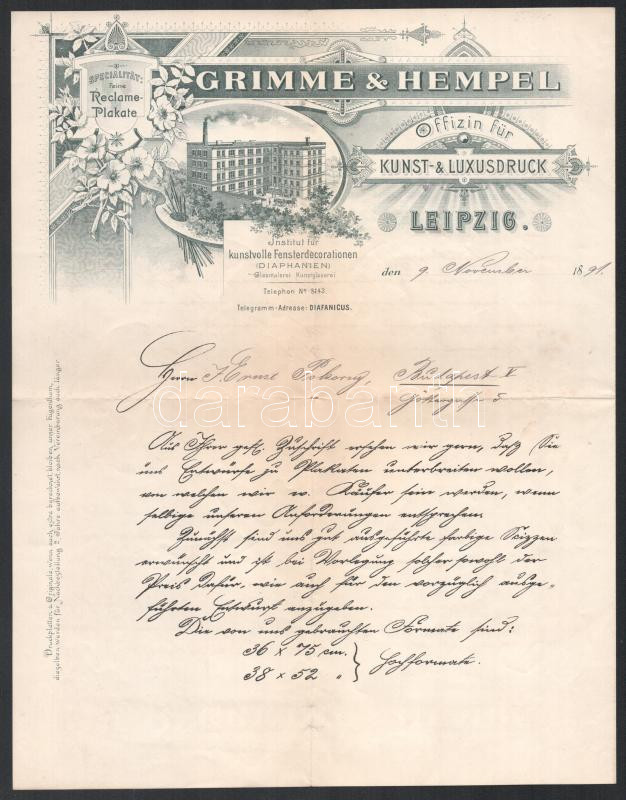 SPECIALITÄT:
Feine
Reclame-
Plakate
GRIMME & HEMPEL
Offizin für
KUNST- & LUXUSDRUCK
LEIPZIG.
Institut für
kunstvolle Fensterdecorationen
(DIAPHANIEN)
Glasmalerei Kunstglaserei
Telephon Nº 3143.
Telegramm-Adresse: DIAFANICUS.
den 9. November 1891.
Herrn Ernst Pokorny, Budapest V
5
Aus Ihrer gefl. Zuschrift ersehen wir gern, daß Sie
uns Entwürfe zu Plakaten unterbreiten wollen,
von welchen wir ev. Käufer sein werden, wenn
selbige unseren Anforderungen entsprechen.
Zunächst sind uns gut ausgeführte farbige Scizzen
erwünscht und ist bei Vorlegung solcher sowohl der
Preis dafür, wie auch für den vorzüglich ausge-
führten Entwurf anzugeben.
Die von uns gebrauchten Formate sind:
36 x 75 cm.
38 x 52 "
Hochformate.
Druckplatten u. Originale, wenn auch extra berechnet, bleiben unser Eigenthum,
dieselben werden für Nachbestellung 2 Jahre aufbewahrt, nach Vereinbarung auch länger.
darabanth